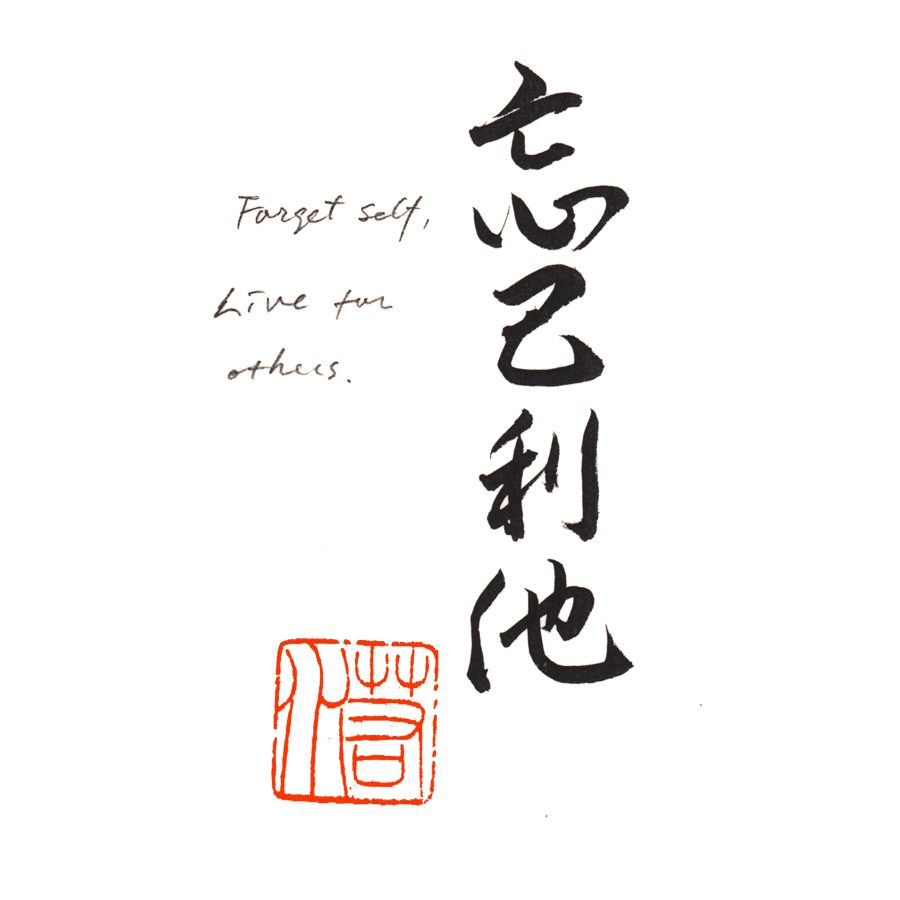 忘己利他
Forget self,
Live for
others.